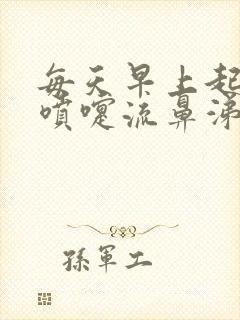 每天早上起
噴嚏流鼻涕
孫軍工